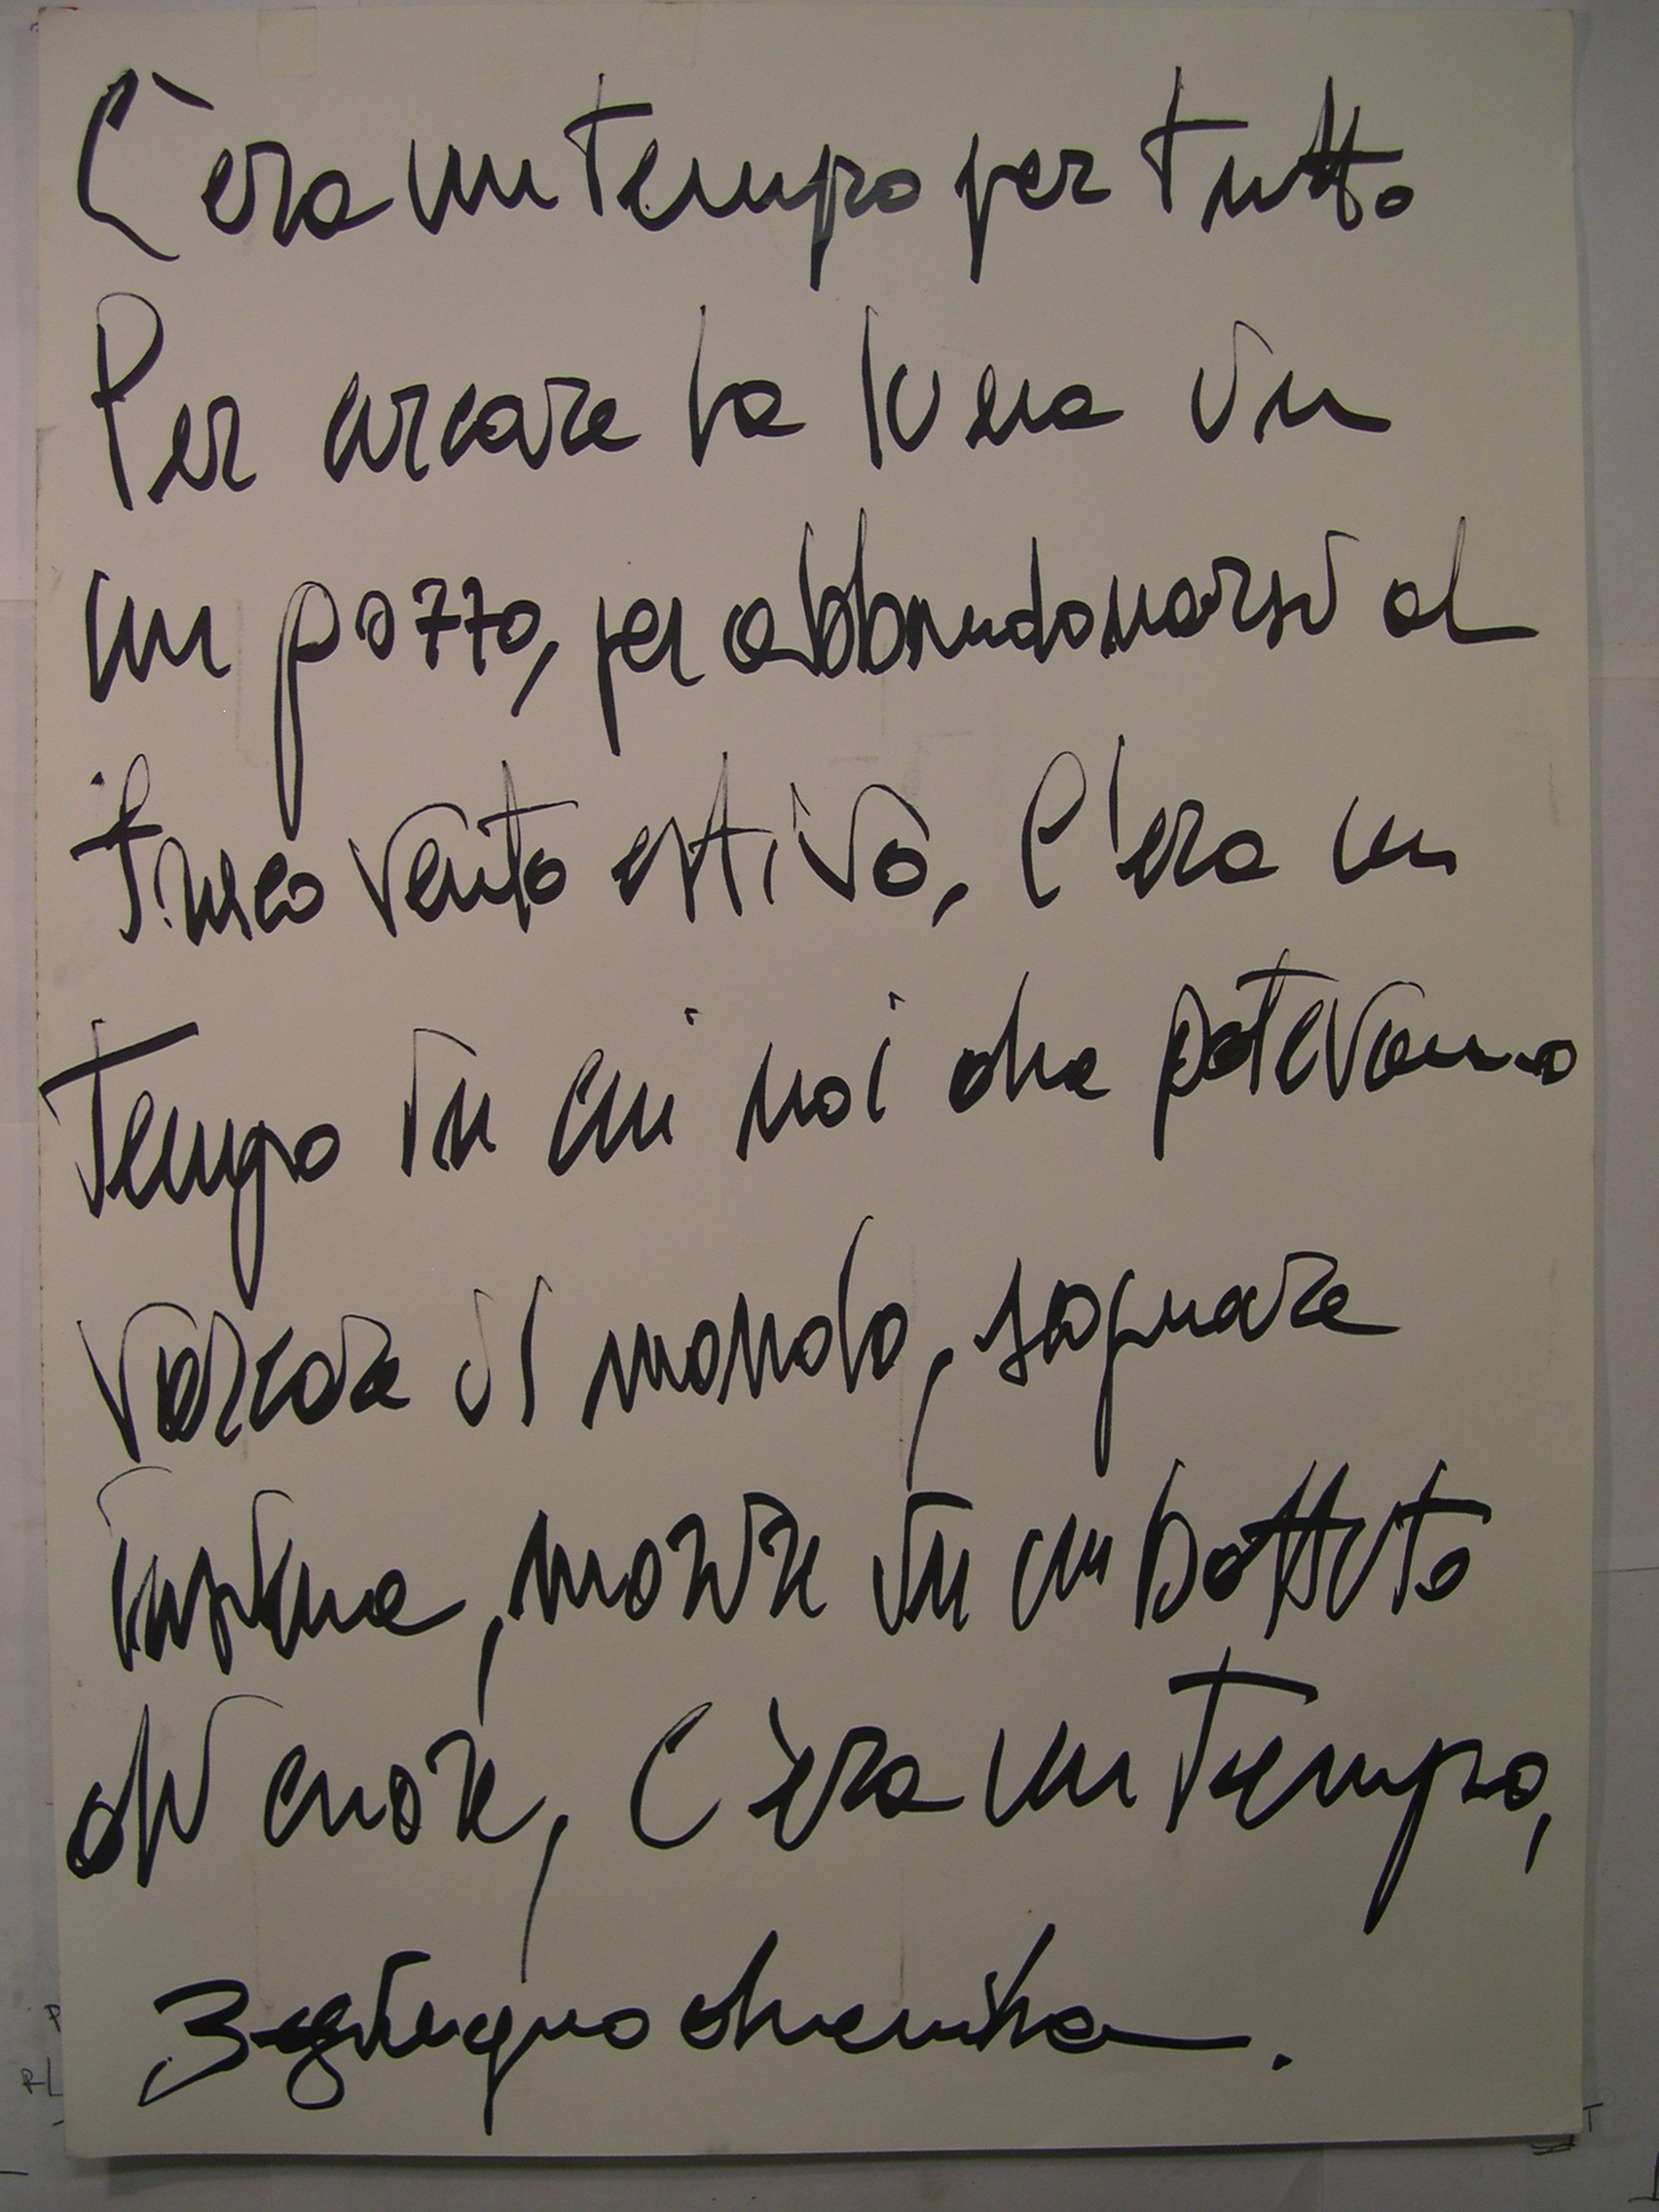 C'era un tempo per tutto
Per cercare la luna in
un pozzo, per abbandonarsi al
fresco vento estivo, C'era un
tempo in cui noi due potevamo
varcare il mondo, sognare
insieme, morire in un battito
di cuore, C'era un tempo,
giugno duemila.